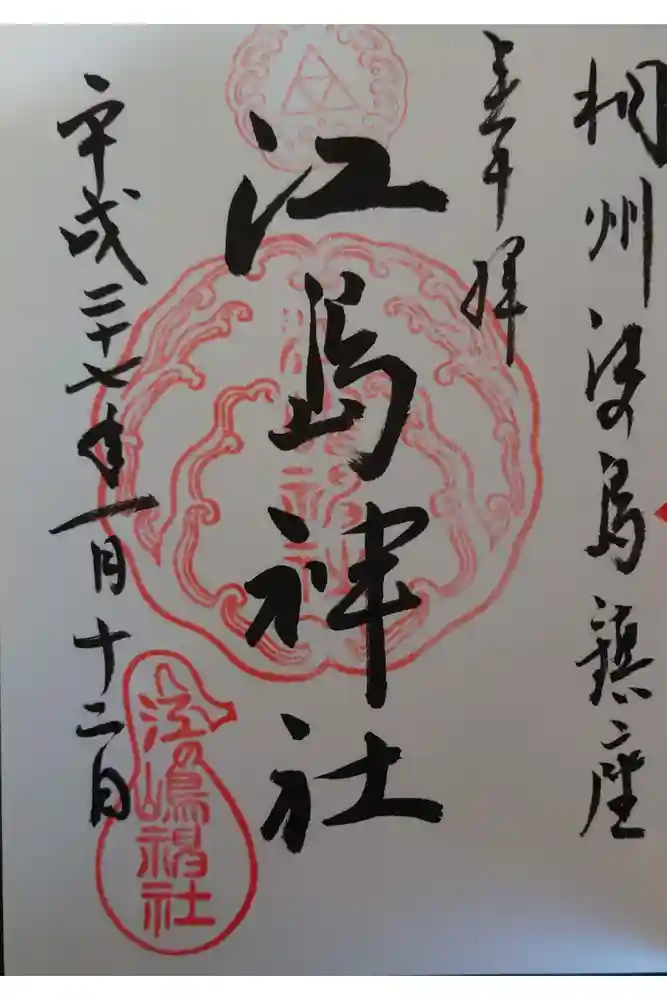 相州江の島鎮座
奉拝
江島神社
平成二十七年一月十二日
江の嶋神社